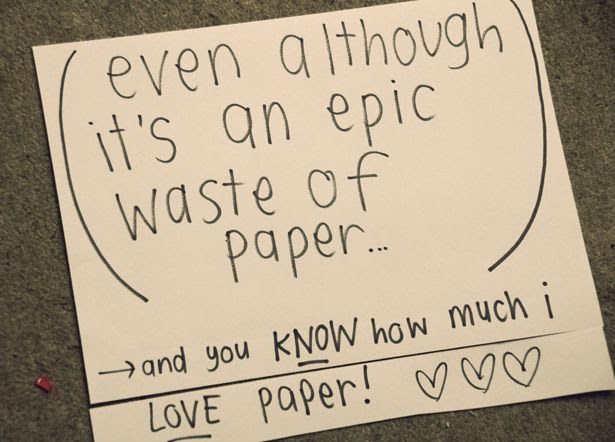 (even although
it's an epic
waste of
paper...)
→and you KNOW how much i
LOVE paper! ♡♡♡